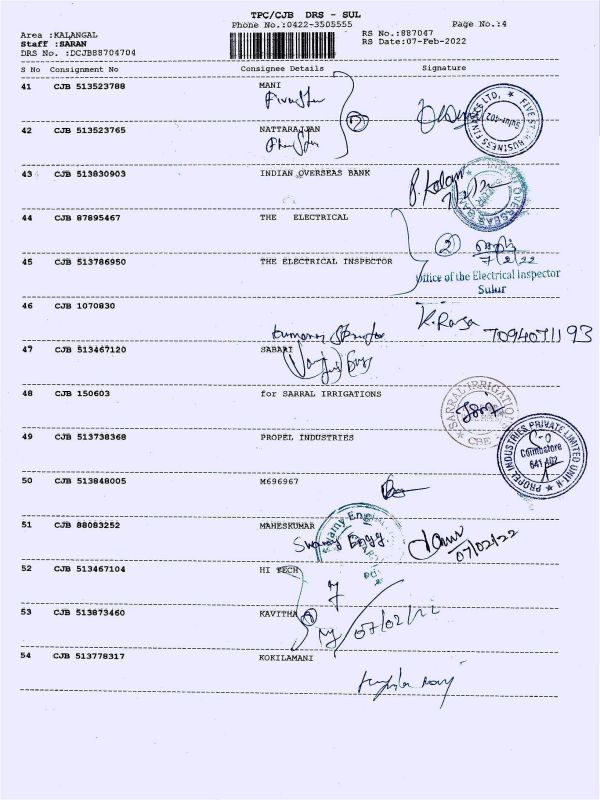 TPC/CJB DRS - SUL
Phone No.:0422-3505555
Page No.:4
Area :KALANGAL
Staff :SARAN
DRS No. :DCJB88704704
RS No.:887047
RS Date:07-Feb-2022
S No Consignment No Consignee Details Signature
41 CJB 513523788 MANI
42 CJB 513523765 NATTARAJJAN
2
FIVE STAR BUSINESS FINANCE LTD,
Sulur-402
43 CJB 513830903 INDIAN OVERSEAS BANK
INDIAN OVERSEAS BANK
44 CJB 87895467 THE ELECTRICAL
2
7/2/22
45 CJB 513786950 THE ELECTRICAL INSPECTOR
Office of the Electrical Inspector
Sulur
46 CJB 1070830
K. Raja 7094071193
47 CJB 513467120 SABARI
48 CJB 150603 for SARRAL IRRIGATIONS
SARRAL IRRIGATION
CBE
49 CJB 513738368 PROPEL INDUSTRIES
PROPEL INDUSTRIES PRIVATE LIMITED UNIT-
Coimbatore
641 402
50 CJB 513848005 M696967
51 CJB 88083252 MAHESKUMAR
Swamy Engg
07/02/22
52 CJB 513467104 HI TECH
53 CJB 513873460 KAVITHA
07/02/22
54 CJB 513778317 KOKILAMANI